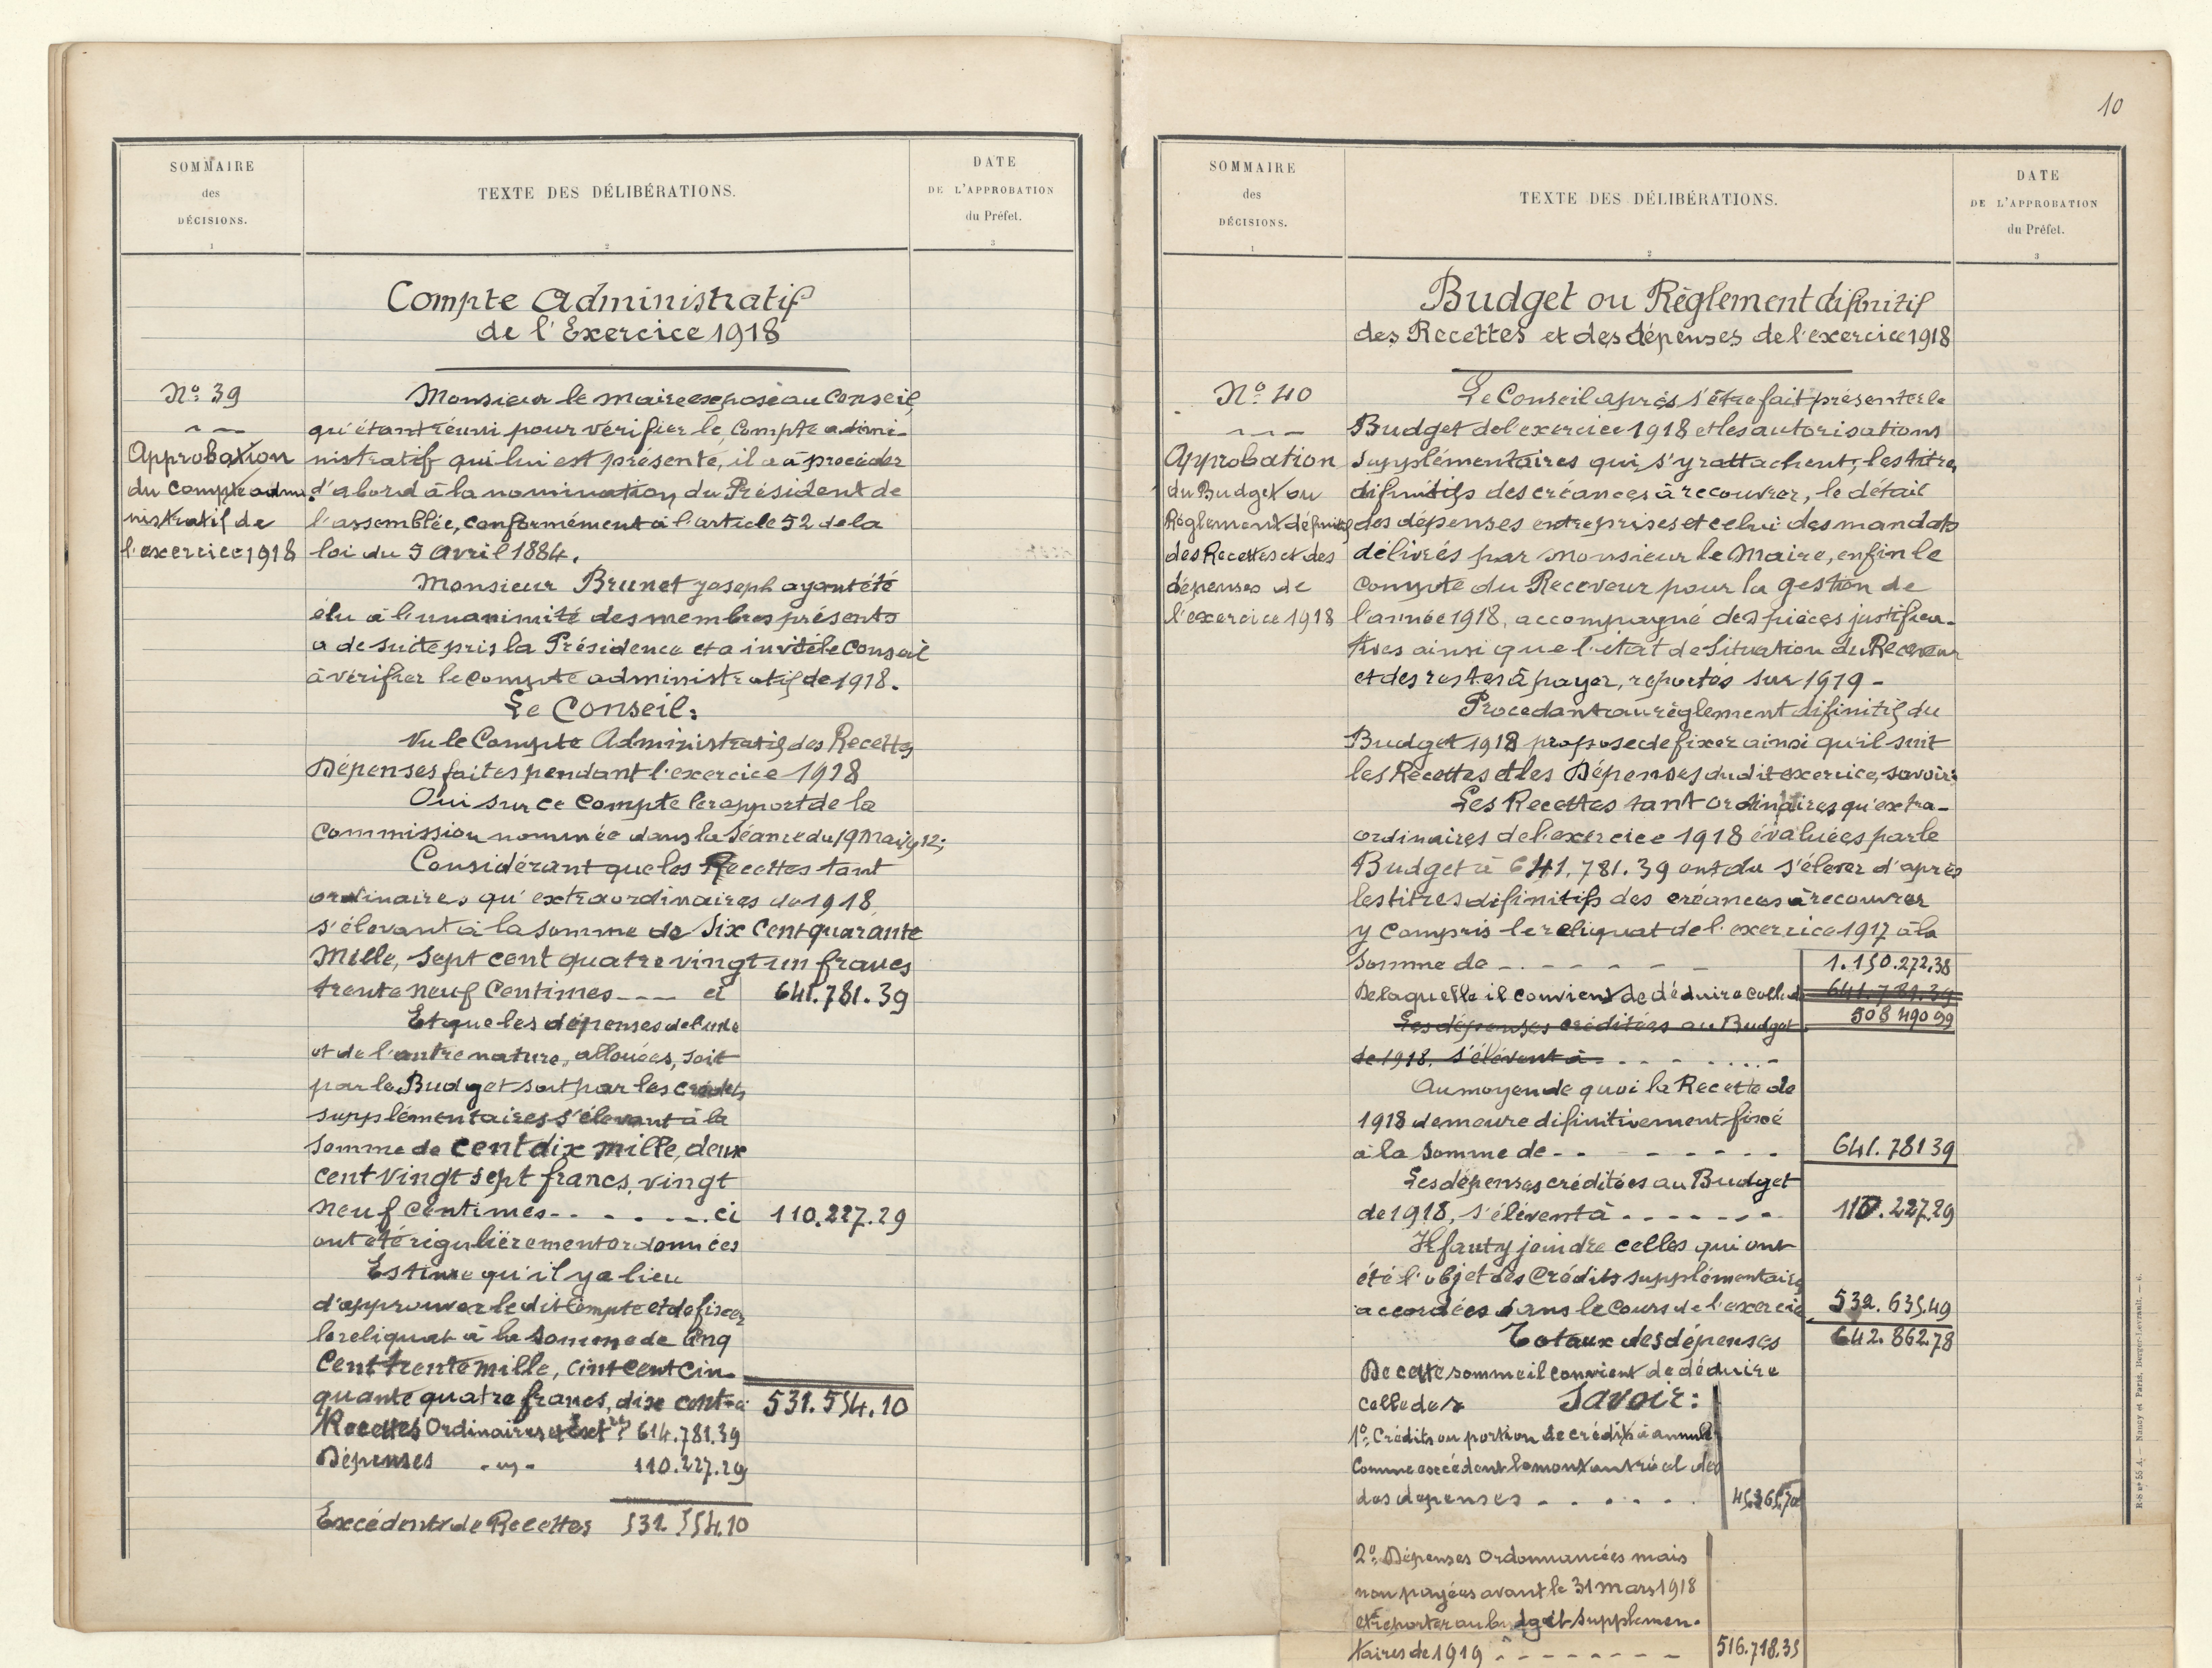 SOMMAIRE
des
DÉCISIONS.
1
TEXTE DES DÉLIBÉRATIONS.
2
DATE
DE L'APPROBATION
du Préfet.
3
Compte Administratif
de l'Exercice 1918
No: 39
Approbation
du Compte admi
nistratif de
l'exercice 1918
Monsieur le maire expose au Conseil
qu'étant réuni pour vérifier le Compte admi-
nistratif qui lui est présenté, il a à procéder
d'abord à la nomination du Président de
l'assemblée, conformément à l'article 52 de la
loi du 5 Avril 1884.
Monsieur Brunet Joseph ayant été
élu à l'unanimité des membres présents
a de suite pris la Présidence et a invité le Conseil
à vérifier le compte administratif de 1918.
Le Conseil:
Vu le Compte Administratif des Recettes
Dépenses faites pendant l'exercice 1918
Oui sur ce Compte le rapport de la
Commission nommée dans la Séance du 19 Mai 1912;
Considérant que les Recettes tant
ordinaires qu'extraordinaires de 1918
s'élevant à la somme de Six Cent quarante
Mille, Sept cent quatre vingt un francs
trente neuf Centimes --- ci 641.781.39
Et que les dépenses de l'une
et de l'autre nature, allouées, soit
par le Budget soit par les crédits
supplémentaires s'élevant à la
Somme de Cent dix mille, deux
Cent vingt sept francs, vingt
neuf Centimes - - . . . - . ci 110.227.29
ont été régulièrement ordonnées
Estime qu'il y a lieu
d'approuver le dit Compte et de fixer
le reliquat à la Somme de Cinq
Cent trente mille, Cint cent cin-
quante quatre francs, dix cent. ci 531.554.10
Recettes Ordinaires et Ext 614.781.39
Dépenses - " - 110.227.29
Excédent de Recettes 531.554.10
10
SOMMAIRE
des
DÉCISIONS.
1
TEXTE DES DÉLIBÉRATIONS.
2
DATE
DE L'APPROBATION
du Préfet.
3
Budget ou Règlement difinitif
des Recettes et des dépenses de l'exercice 1918
No: 40
Approbation
du Budget ou
Règlement définitif
des Recettes et des
dépenses de
l'exercice 1918
Le Conseil après s'être fait présenter le
Budget de l'exercice 1918 et les autorisations
supplémentaires qui s'y rattachent, les titres
difinitifs des créances à recouvrer, le détail
des dépenses entreprises et celui des mandats
délivrés par Monsieur le Maire, enfin le
Compte du Receveur pour la gestion de
l'année 1918, accompagné des pièces justifica-
tives ainsi que l'état de Situation du Receveur
et des restes à payer, reportés sur 1919 -
Procedant au règlement difinitif du
Budget 1918 propose de fixer ainsi qu'il suit
les Recettes et les Dépenses dudit exercice, savoir:
Les Recettes tant ordinaires qu'extra-
ordinaires de l'exercice 1918 évaluées par le
Budget à 641.781.39 ont du s'élever d'après
les titres difinitifs des créances à recouvrer
y Compris le reliquat de l'exercice 1917 à la
Somme de - - - - - - 1.150.272.38
De laquelle il convient de déduire celle d 641.781.39
Les dépenses créditées au Budget 508 490 99
de 1918, s'élèvent à - - - - - - -
Au moyen de quoi la Recette de
1918 demeure difinitivement fixée
à la Somme de - - - - - - - 641.781 39
Les dépenses créditées au Budget
de 1918, s'élèvent à - - - - - - - 110.227.29
Il faut y joindre celles qui ont
été l'objet des Crédits supplémentaires
accordées dans le Cours de l'exercice 532.635.49
Totaux des dépenses 642.862.78
De cette somme il convient de déduire
celle des Savoir:
1o: Crédits ou portion de crédits à annuler
Comme excédent le montant réel des
des dépenses - . . . . .
2o: Dépenses Ordonnancées mais
non payées avant le 31 Mars 1918
et reporter au budget supplémen-
taires de 1919 - - - - - - - 516.718.35
R-S no 55 A. — Nancy et Paris, Berger-Levrault. — 6.